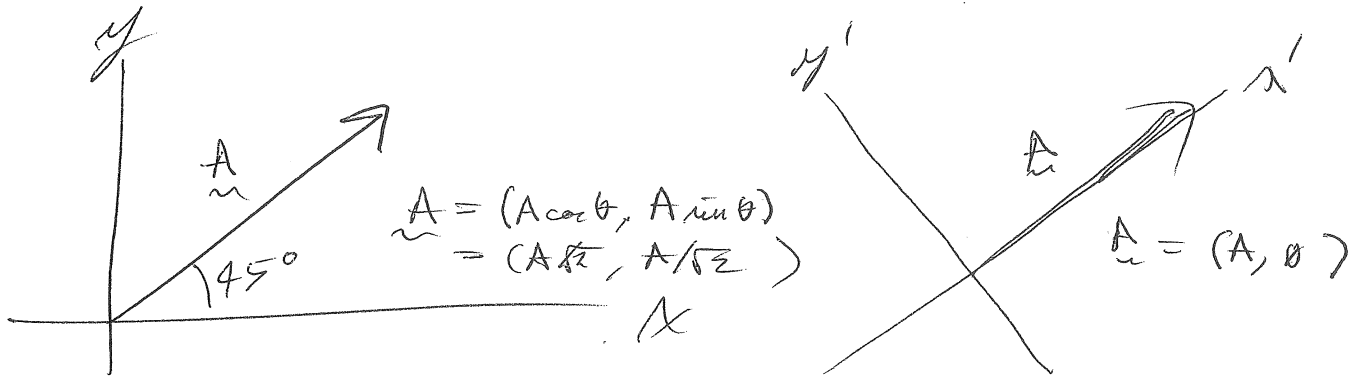 y
A
45°
A = (A cos θ, A sin θ)
= (A/√2, A/√2)
x
y'
x'
A
A = (A, 0)